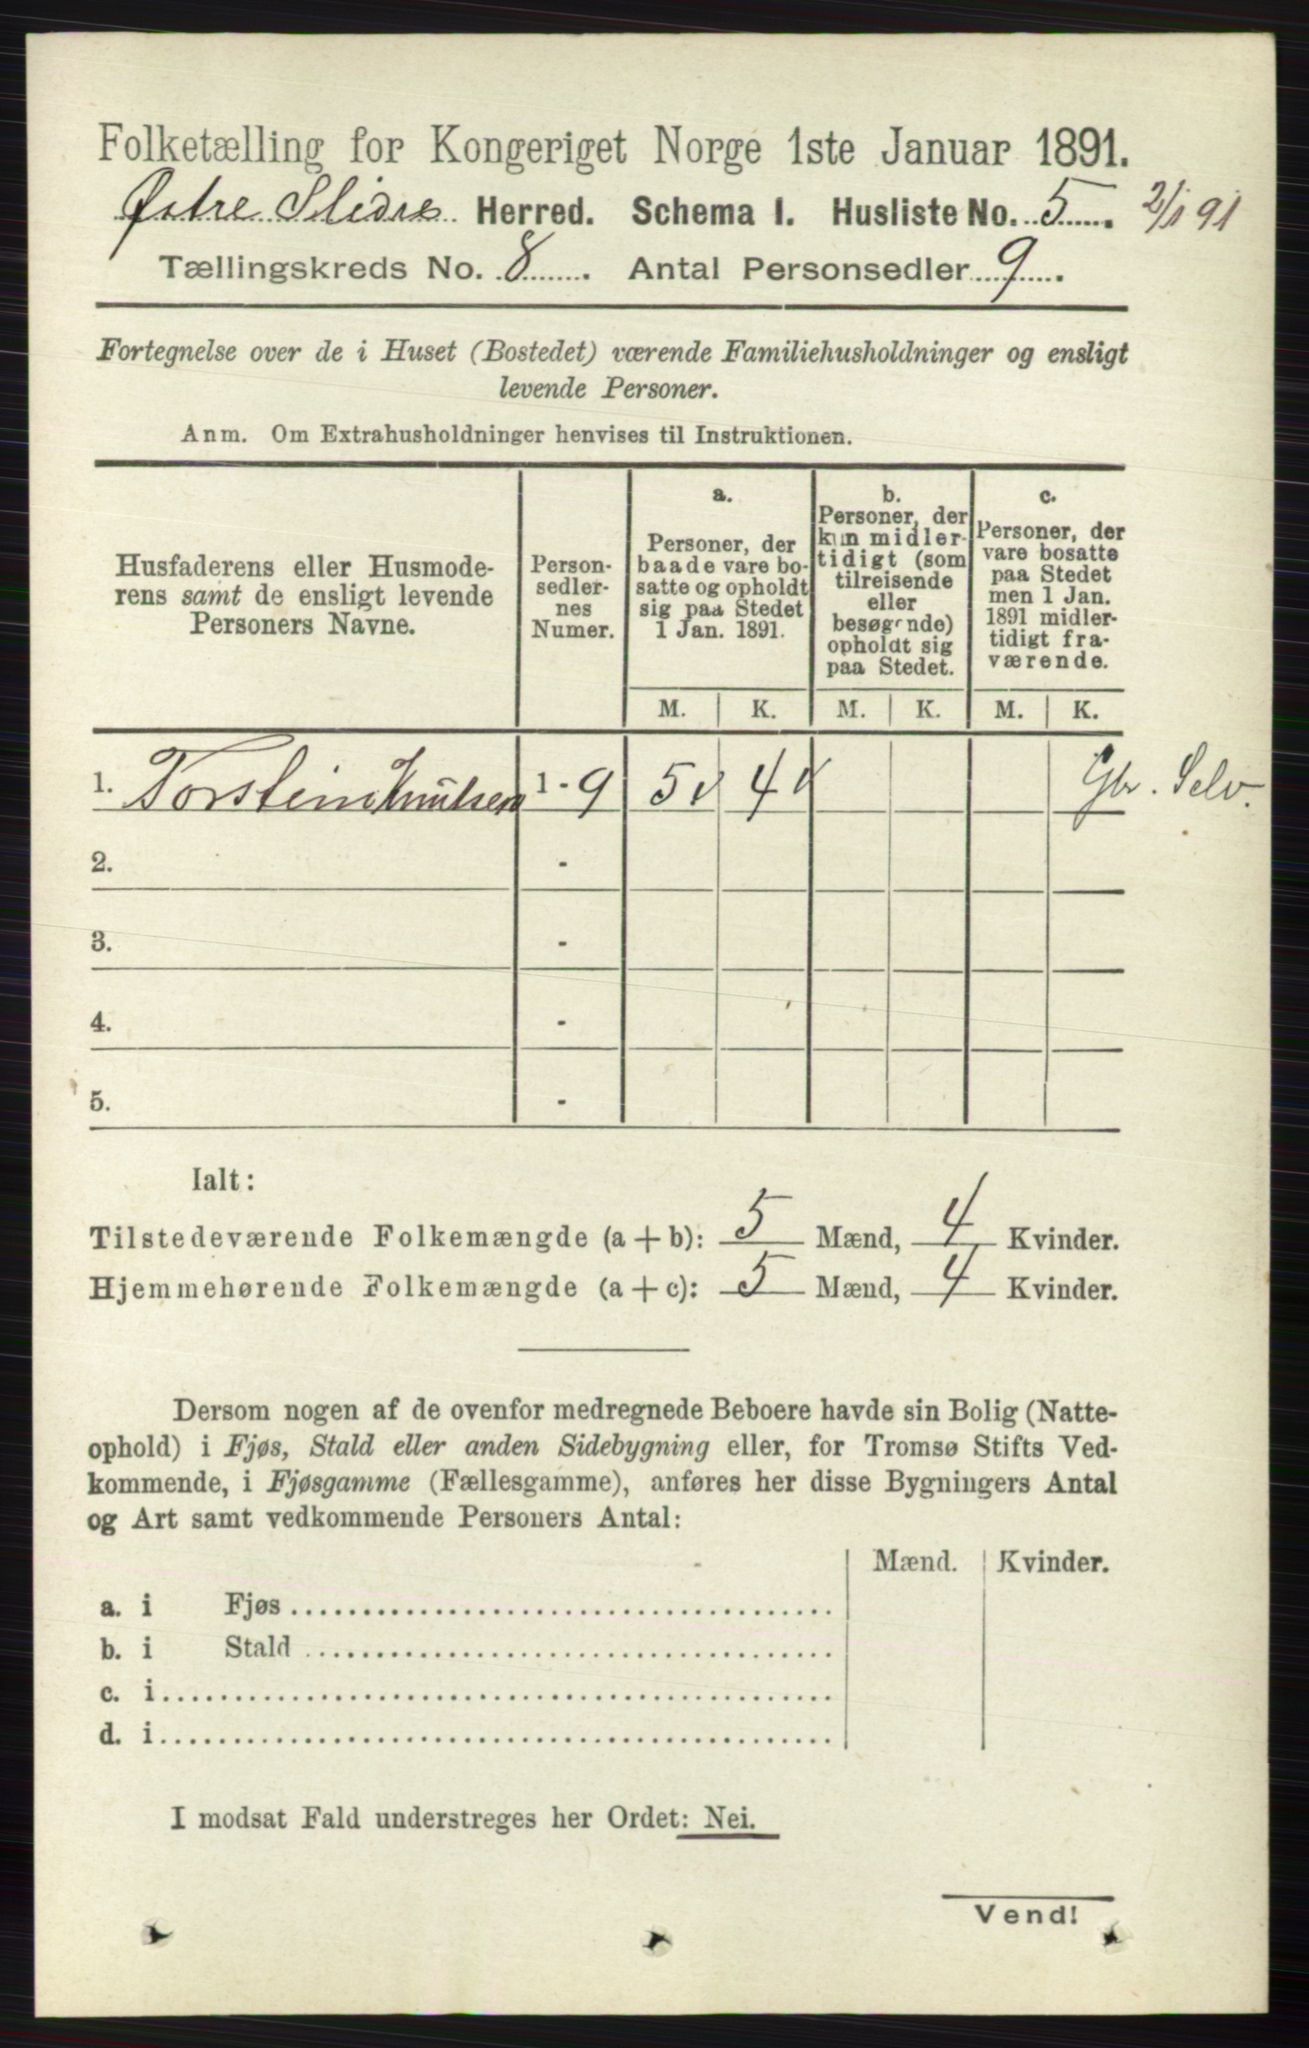 Folketælling for Kongeriget Norge 1ste Januar 1891.
Østre Slidre Herred. Schema I. Husliste No. 5 2/1 91
Tællingskreds No. 8 Antal Personsedler 9
Fortegnelse over de i Huset (Bostedet) værende Familiehusholdninger og ensligt
levende Personer.
Anm. Om Extrahusholdninger henvises til Instruktionen.
Husfaderens eller Husmode-
rens samt de ensligt levende
Personers Navne.
Person-
sedler-
nes
Numer.
a.
Personer, der
baade vare bo-
satte og opholdt
sig paa Stedet
1 Jan. 1891.
b.
Personer, der
kun midler-
tidigt (som
tilreisende
eller
besøgende)
opholdt sig
paa Stedet.
c.
Personer, der
vare bosatte
paa Stedet
men 1 Jan.
1891 midler-
tidigt fra-
værende.
M. K. M. K. M. K.
1. Torstein Knutsen 1 - 9 5 4 Gbr. Selv.
2. -
3. -
4. -
5. -
Ialt:
Tilstedeværende Folkemængde (a + b): 5 Mænd, 4 Kvinder.
Hjemmehørende Folkemængde (a + c): 5 Mænd, 4 Kvinder.
Dersom nogen af de ovenfor medregnede Beboere havde sin Bolig (Natte-
ophold) i Fjøs, Stald eller anden Sidebygning eller, for Tromsø Stifts Ved-
kommende, i Fjøsgamme (Fællesgamme), anføres her disse Bygningers Antal
og Art samt vedkommende Personers Antal:
Mænd. Kvinder.
a. i Fjøs
b. i Stald
c. i
d. i
I modsat Fald understreges her Ordet: Nei.
Vend!